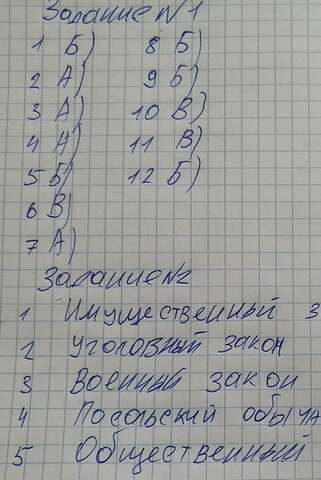 Задание №1
1 Б) 8 Б)
2 А) 9 Б)
3 А) 10 В)
4 А) 11 В)
5 Б) 12 Б)
6 В)
7 А)
Задание №2
1 Имущественный з
2 Уголовный закон
3 Военный закон
4 Посольский обыча
5 Общественный